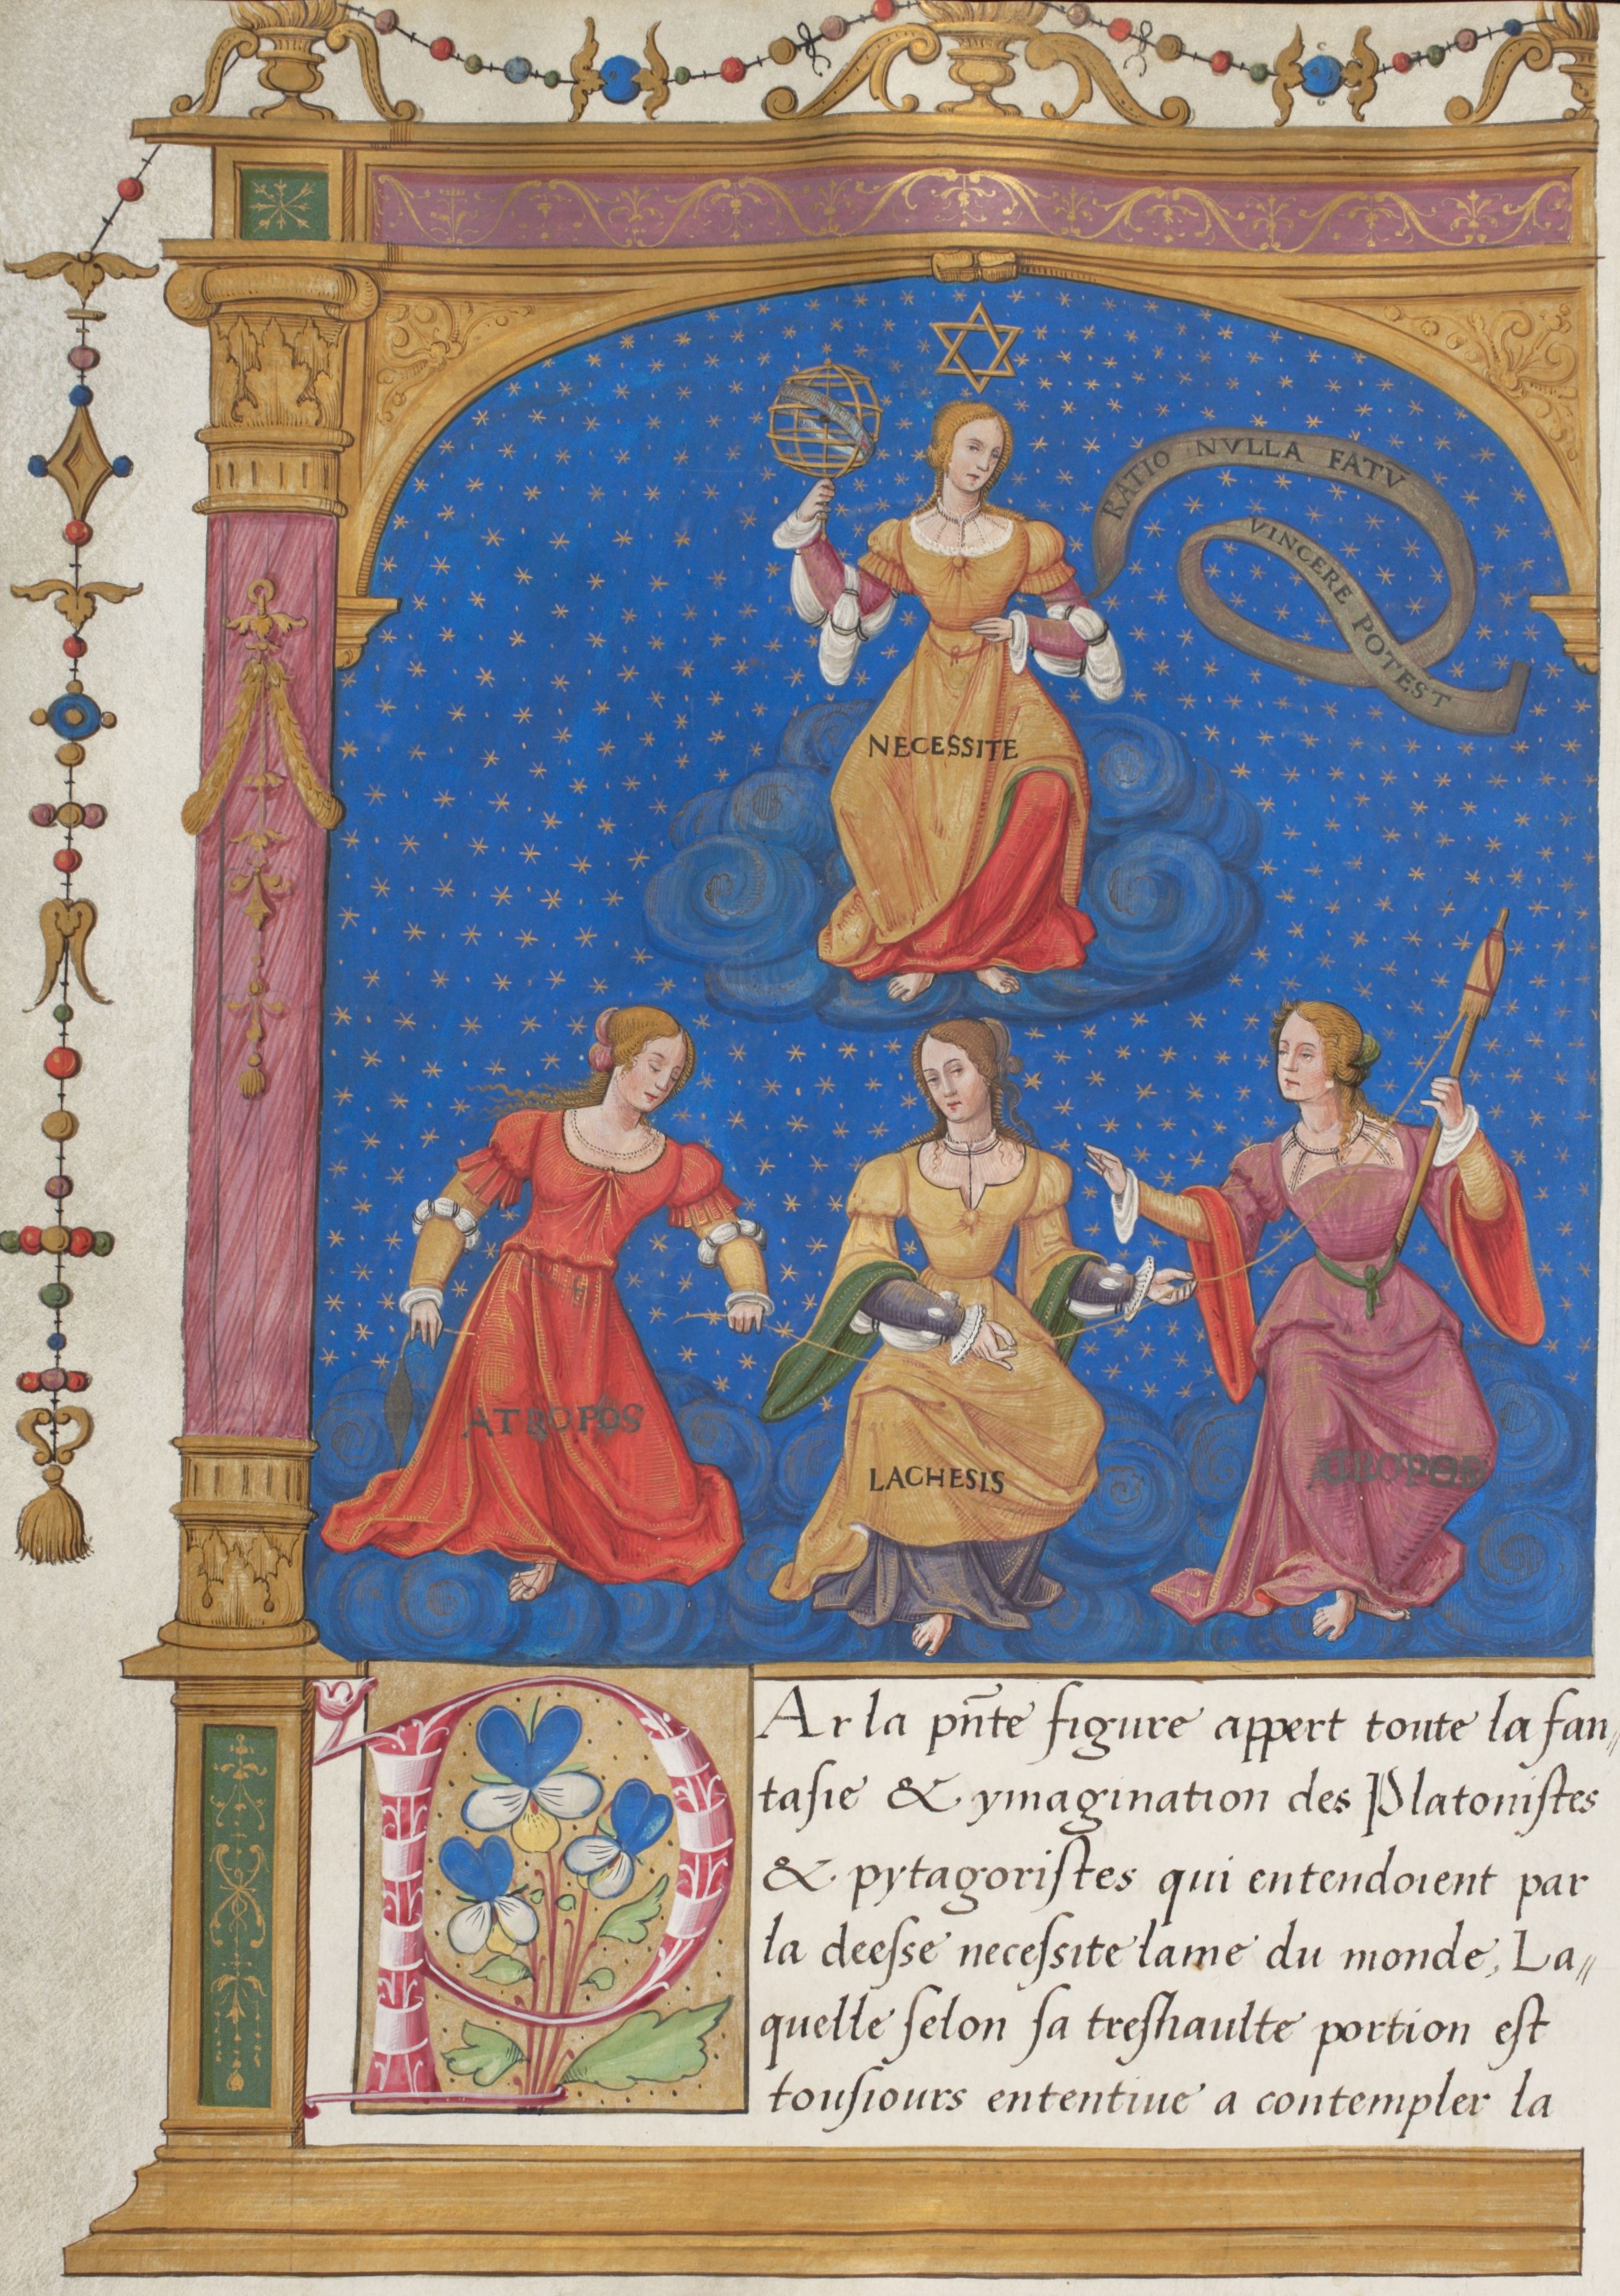 RATIO NVLLA FATV̄
VINCERE POTEST
NECESSITE
ATROPOS
LACHESIS
PAr la pn̄te figure appert toute la fan〃
tasie & ymagination des Platonistes
& pytagoristes qui entendoient par
la deesse necessite lame du monde, La〃
quelle selon sa treshaulte portion est
tousiours ententiue a contempler la